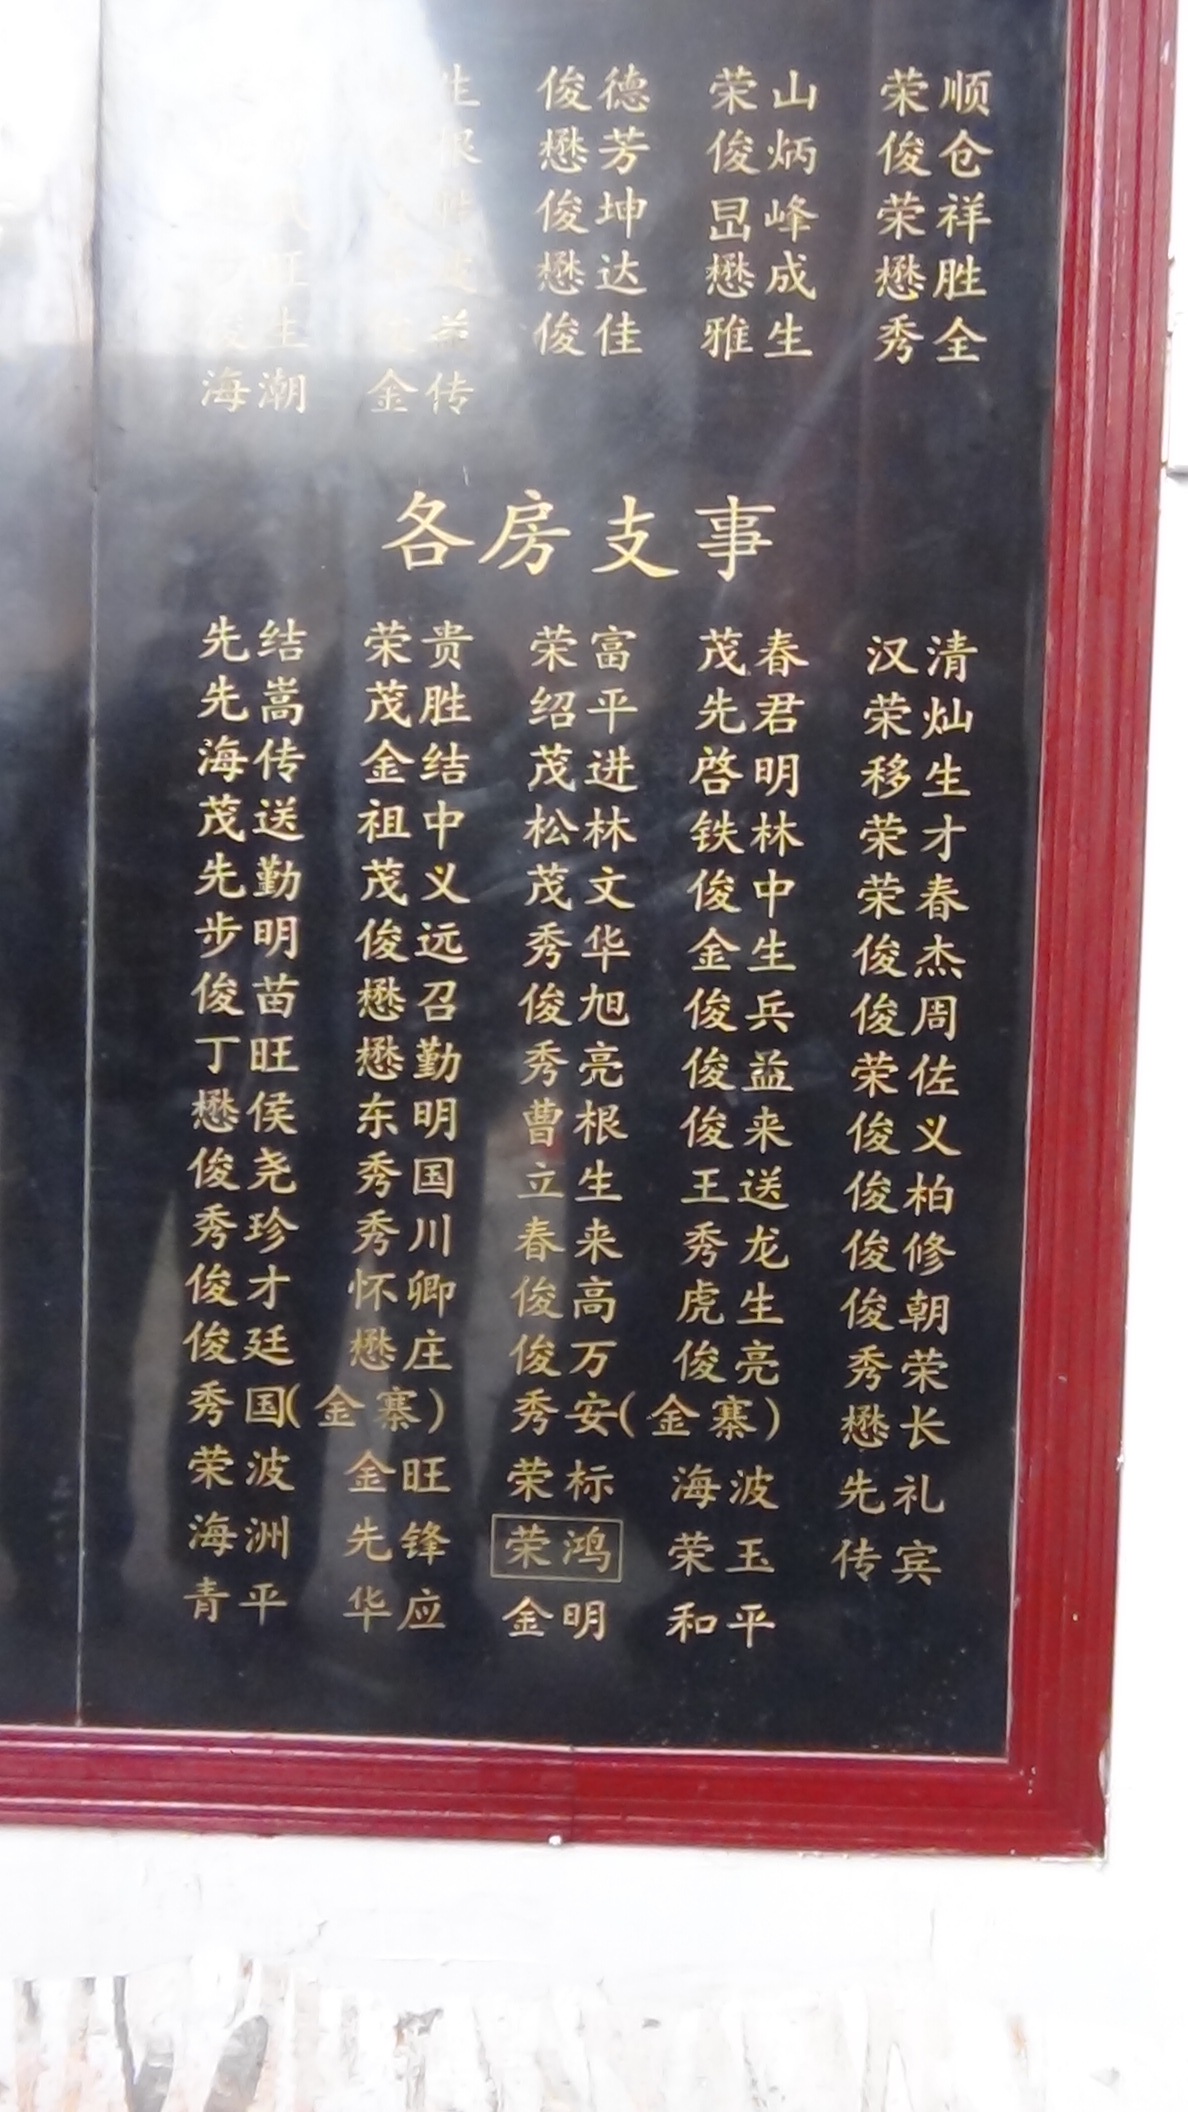 俊德 荣山 荣顺
懋芳 俊炳 俊仓
俊坤 昷峰 荣祥
旺 懋达 懋成 懋胜
生 俊佳 雅生 秀全
海潮 金传
各房支事
先结 荣贵 荣富 茂春 汉清
先嵩 茂胜 绍平 先君 荣灿
海传 金结 茂进 啓明 移生
茂送 祖中 松林 铁林 荣才
先勤 茂义 茂文 俊中 荣春
步明 俊远 秀华 金生 俊杰
俊苗 懋召 俊旭 俊兵 俊周
丁旺 懋勤 秀亮 俊益 荣佐
懋侯 东明 曹根 俊来 俊义
俊尧 秀国 立生 王送 俊柏
秀珍 秀川 春来 秀龙 俊修
俊才 怀卿 俊高 虎生 俊朝
俊廷 懋庄 俊万 俊亮 秀荣
秀国(金寨) 秀安(金寨) 懋长
荣波 金旺 荣标 海波 先礼
海洲 先锋 荣鸿 荣玉 传宾
青平 华应 金明 和平